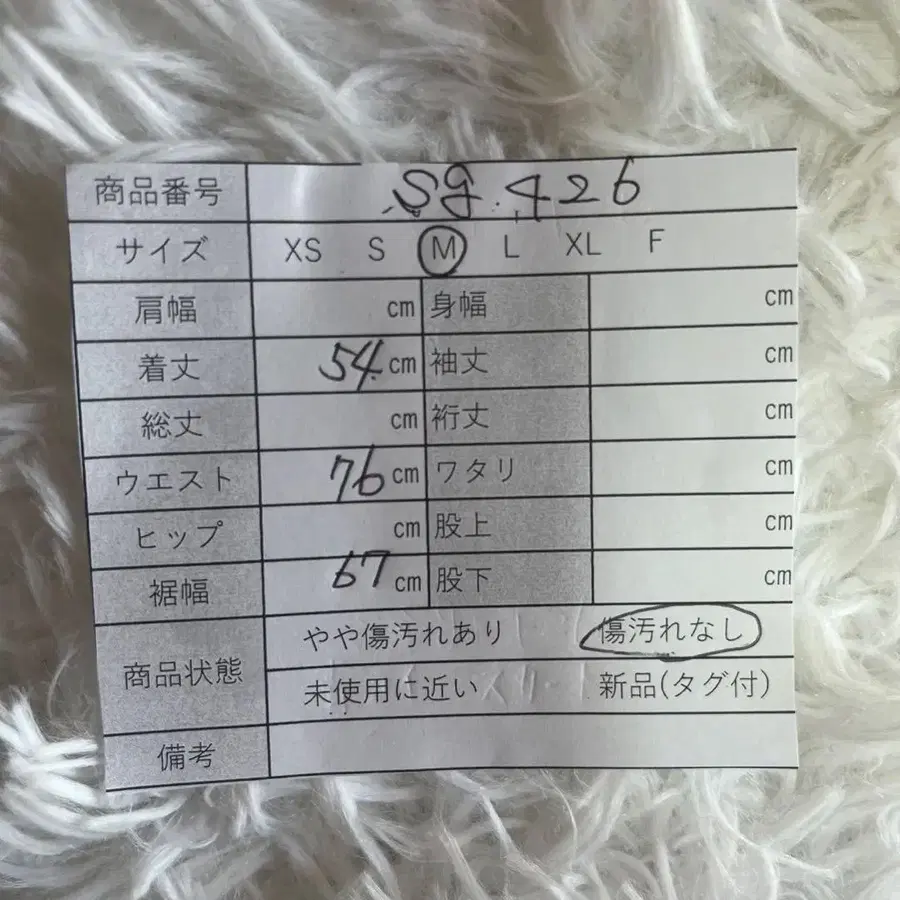 商品番号 sg.426
サイズ XS S M L XL F
肩幅 cm 身幅 cm
着丈 54 cm 袖丈 cm
総丈 cm 裄丈 cm
ウエスト 76 cm ワタリ cm
ヒップ cm 股上 cm
裾幅 67 cm 股下 cm
商品状態 やや傷汚れあり 傷汚れなし
未使用に近い 新品(タグ付)
備考